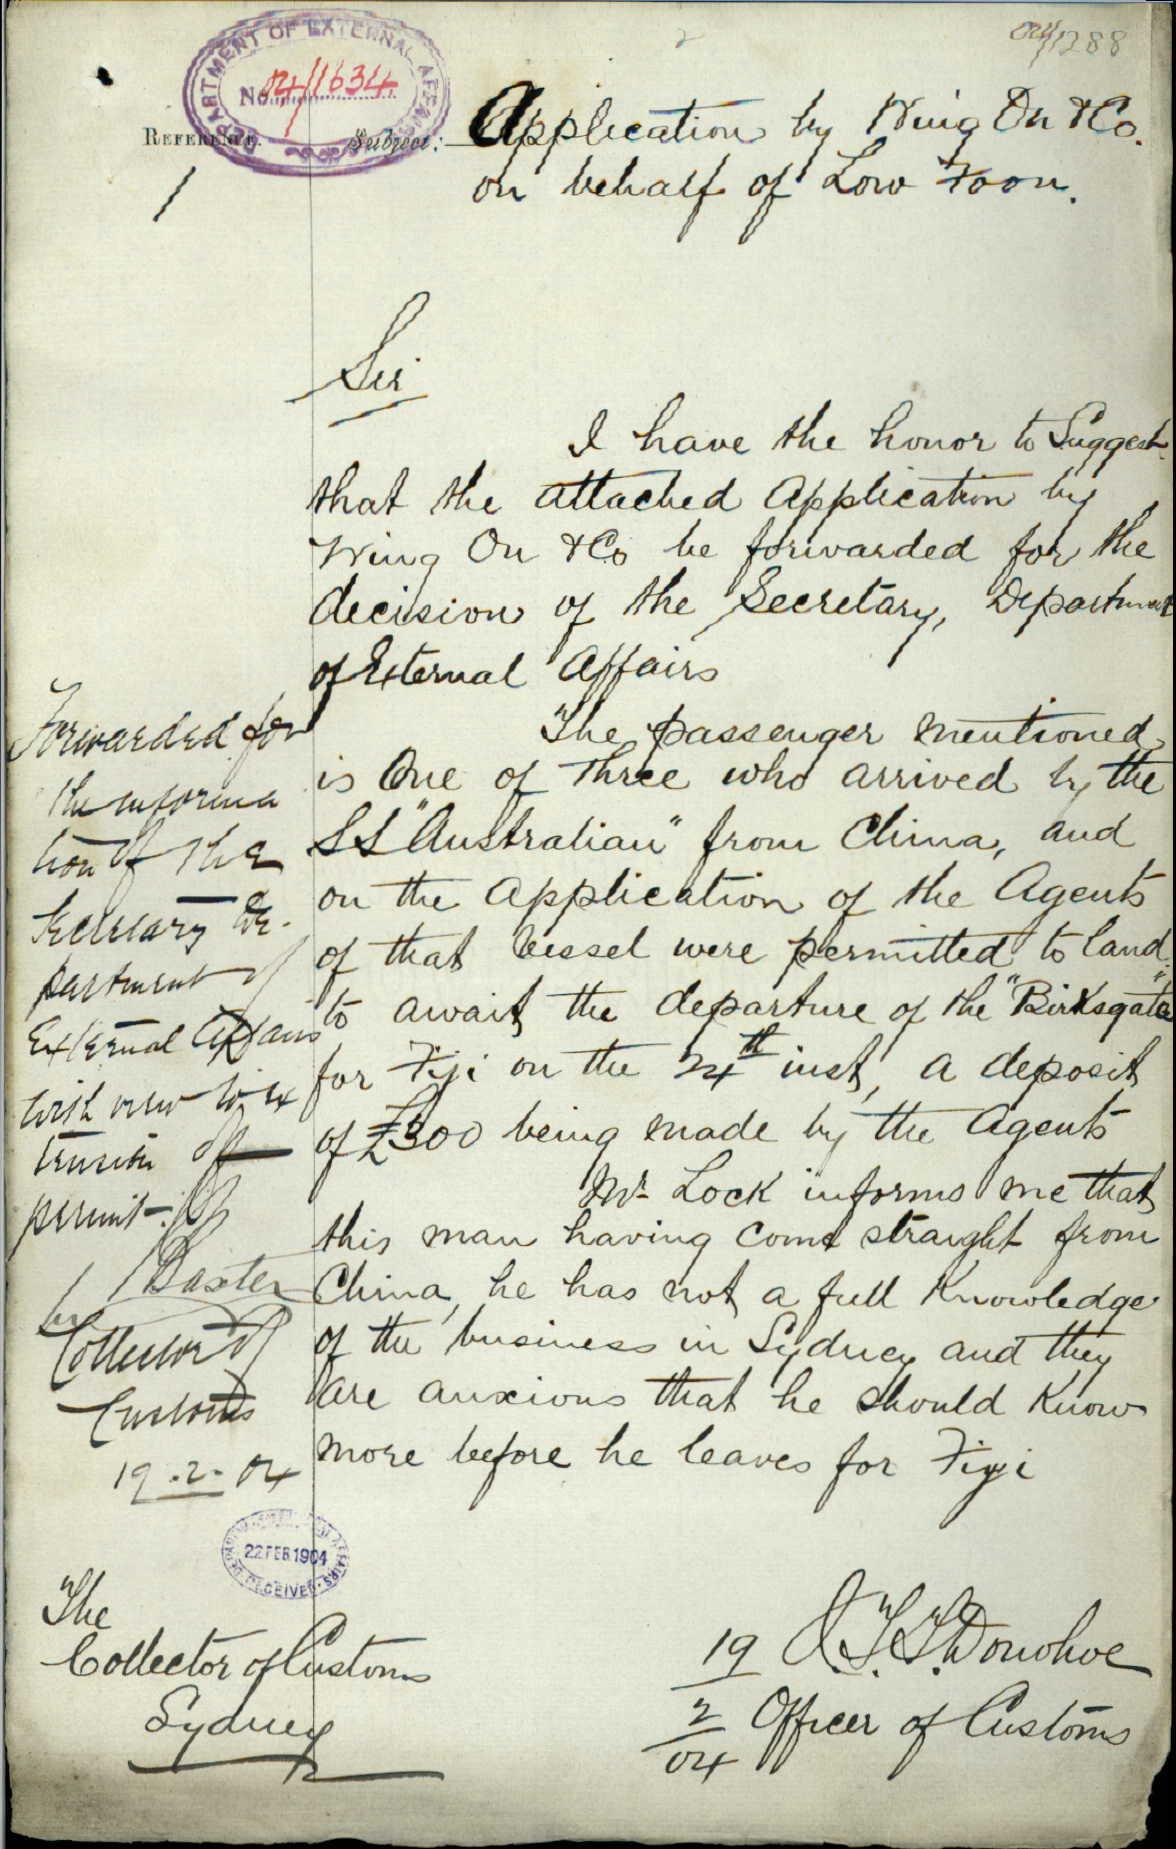 04/1288
2
DEPARTMENT OF EXTERNAL AFFAIRS
No. 04/1634
REFERENCE.
Subject:
Application by Wing On & Co.
on behalf of Low Foon.
1
Sir
I have the honor to Suggest
that the attached Application by
Wing On & Co be forwarded for the
decision of the Secretary, Department
of External Affairs
The passenger mentioned
is One of three who arrived by the
SS "Australian" from China, and
on the Application of the Agents
of that vessel were permitted to land
to await the departure of the "Birksgate"
for Fiji on the 24th inst, a deposit
of £300 being made by the Agents
Mr Lock informs me that
this man having come straight from
China, he has not a full Knowledge
of the business in Sydney and they
are anxious that he should Know
more before he leaves for Fiji
Forwarded for
the informa
tion of the
Secretary De-
partment of
External Affairs
with view to ex
tension of
permit.
Baxter
Collector of
Customs
19.2.04
22 FEB 1904
RECEIVED
The
Collector of Customs
Sydney
19
2
04
Donohoe
Officer of Customs